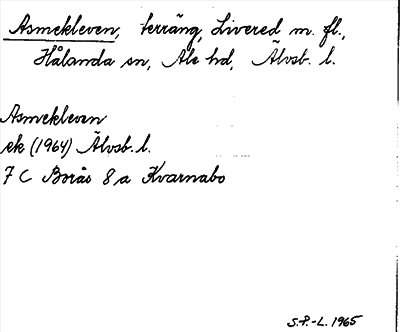 Asmekleven, terräng, Livered m. fl.,
Hålanda sn, Ale hd, Älvsb. l.
Asmekleven
ek (1964) Älvsb. l.
7 C Borås 8 a Kvarnabo
S.P.-L. 1965